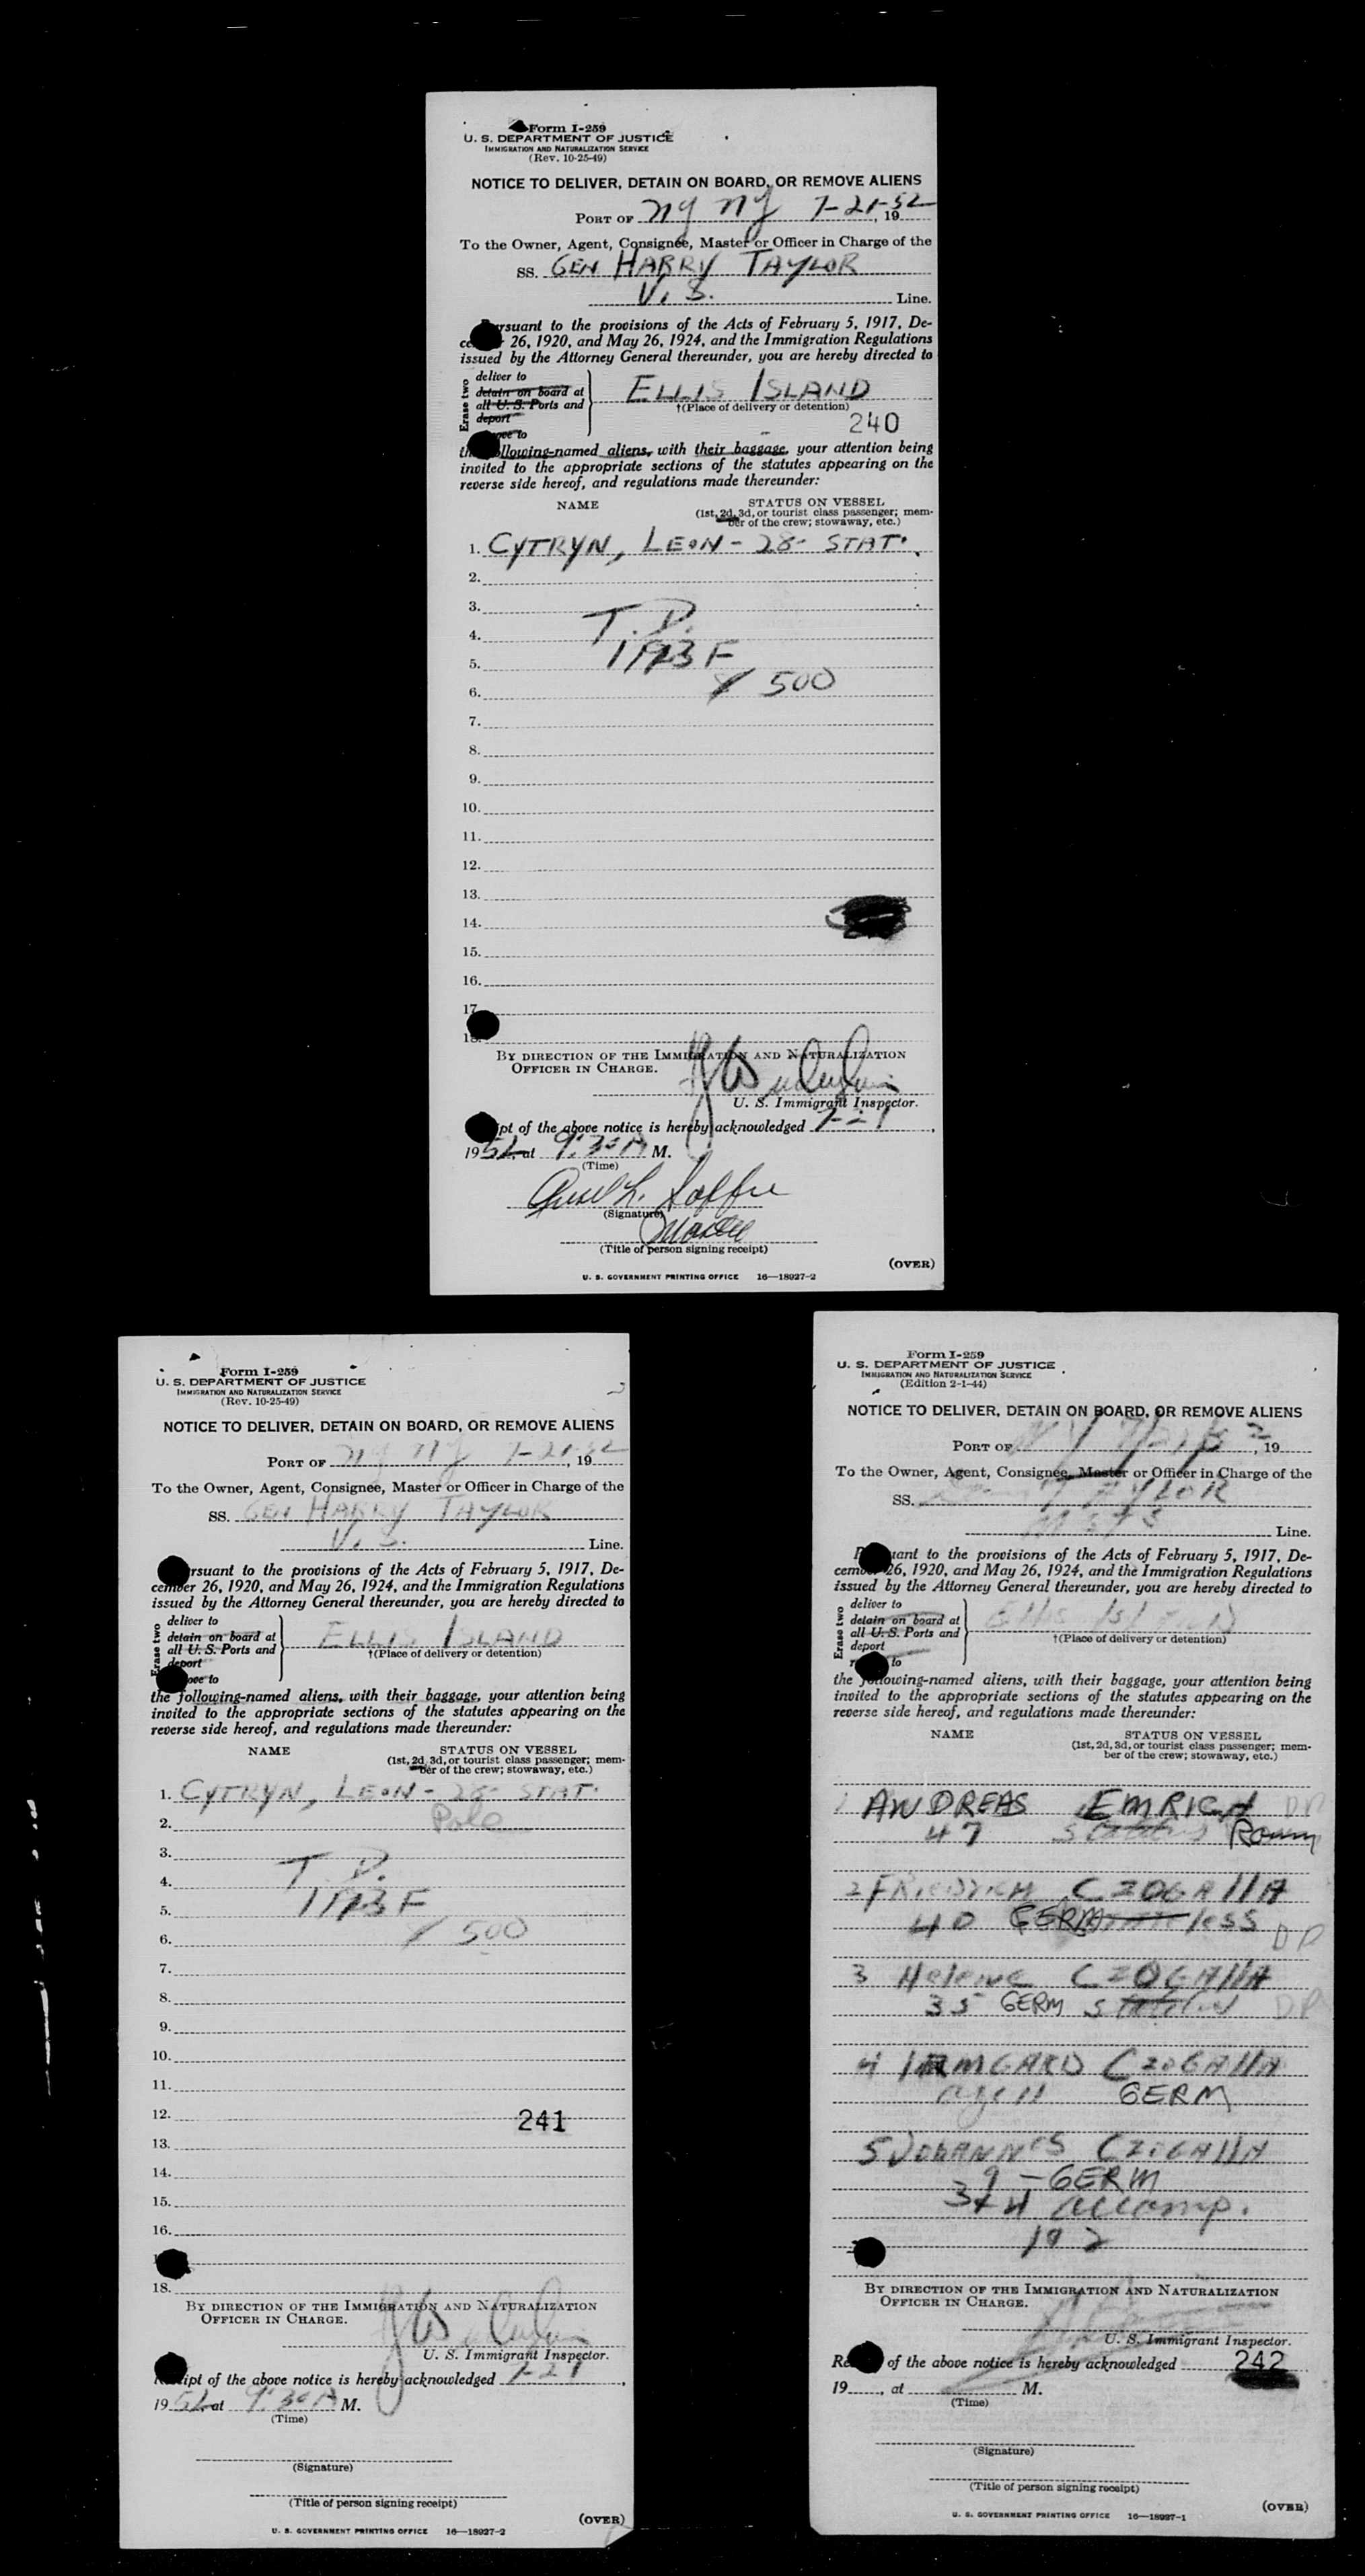 Form I-259
U. S. DEPARTMENT OF JUSTICE
IMMIGRATION AND NATURALIZATION SERVICE
(Rev. 10-25-49)
NOTICE TO DELIVER, DETAIN ON BOARD, OR REMOVE ALIENS
PORT OF NY NY 7-21-52, 19
To the Owner, Agent, Consignee, Master or Officer in Charge of the
SS. GEN HARRY TAYLOR
U. S. Line.
rsuant to the provisions of the Acts of February 5, 1917, De-
ce 26, 1920, and May 26, 1924, and the Immigration Regulations
issued by the Attorney General thereunder, you are hereby directed to
Erase two
deliver to
detain on board at
all U. S. Ports and
deport
ove to
ELLIS ISLAND
†(Place of delivery or detention)
240
th llowing-named aliens, with their baggage, your attention being
invited to the appropriate sections of the statutes appearing on the
reverse side hereof, and regulations made thereunder:
NAME STATUS ON VESSEL
(1st, 2d, 3d, or tourist class passenger; mem-
ber of the crew; stowaway, etc.)
1. CYTRYN, LEON - 28 - STAT.
2.
3.
T. D.
4.
5.
6. 500
7.
8.
9.
10.
11.
12.
13.
14.
15.
16.
17
18.
BY DIRECTION OF THE IMMIGRATION AND NATURALIZATION
OFFICER IN CHARGE.
U. S. Immigrant Inspector.
ipt of the above notice is hereby acknowledged 7-21,
1952, at 9:30 A M.
(Time)
(Signature)
Master
(Title of person signing receipt)
(OVER)
U. S. GOVERNMENT PRINTING OFFICE 16—18927-2
Form I-259
U. S. DEPARTMENT OF JUSTICE
IMMIGRATION AND NATURALIZATION SERVICE
(Rev. 10-25-49)
NOTICE TO DELIVER, DETAIN ON BOARD, OR REMOVE ALIENS
PORT OF NY NY 7-21-52, 19
To the Owner, Agent, Consignee, Master or Officer in Charge of the
SS. GEN HARRY TAYLOR
U. S. Line.
rsuant to the provisions of the Acts of February 5, 1917, De-
cember 26, 1920, and May 26, 1924, and the Immigration Regulations
issued by the Attorney General thereunder, you are hereby directed to
Erase two
deliver to
detain on board at
all U. S. Ports and
deport
ove to
ELLIS ISLAND
†(Place of delivery or detention)
the following-named aliens, with their baggage, your attention being
invited to the appropriate sections of the statutes appearing on the
reverse side hereof, and regulations made thereunder:
NAME STATUS ON VESSEL
(1st, 2d, 3d, or tourist class passenger; mem-
ber of the crew; stowaway, etc.)
1. CYTRYN, LEON - 28 - STAT.
2. Pole
3.
T. D.
4.
5.
6. 500
7.
8.
9.
10.
11.
12. 241
13.
14.
15.
16.
18.
BY DIRECTION OF THE IMMIGRATION AND NATURALIZATION
OFFICER IN CHARGE.
U. S. Immigrant Inspector.
ipt of the above notice is hereby acknowledged 7-21,
1952, at 9:30 A M.
(Time)
(Signature)
(Title of person signing receipt)
(OVER)
U. S. GOVERNMENT PRINTING OFFICE 16—18927-2
Form I-259
U. S. DEPARTMENT OF JUSTICE
IMMIGRATION AND NATURALIZATION SERVICE
(Edition 2-1-44)
NOTICE TO DELIVER, DETAIN ON BOARD, OR REMOVE ALIENS
PORT OF NY 7/21/52, 19
To the Owner, Agent, Consignee, Master or Officer in Charge of the
SS. TAYLOR
MSTS Line.
uant to the provisions of the Acts of February 5, 1917, De-
cember 26, 1920, and May 26, 1924, and the Immigration Regulations
issued by the Attorney General thereunder, you are hereby directed to
Erase two
deliver to
detain on board at
all U. S. Ports and
deport
to
Ellis Island
†(Place of delivery or detention)
the following-named aliens, with their baggage, your attention being
invited to the appropriate sections of the statutes appearing on the
reverse side hereof, and regulations made thereunder:
NAME STATUS ON VESSEL
(1st, 2d, 3d, or tourist class passenger; mem-
ber of the crew; stowaway, etc.)
1 ANDREAS EMRICH DP
47 Stateless Roum
2 FRIEDRICH CZOGALLA
40 GERM less DP
3 Helene CZOGALLA
35 GERM Stateless DP
4 IRMGARD CZOGALLA
age 11 GERM
5 JOHANNES CZOGALLA
9 - GERM
3 + 4 accomp.
192
BY DIRECTION OF THE IMMIGRATION AND NATURALIZATION
OFFICER IN CHARGE.
U. S. Immigrant Inspector.
Re of the above notice is hereby acknowledged 242
19, at M.
(Time)
(Signature)
(Title of person signing receipt)
(OVER)
U. S. GOVERNMENT PRINTING OFFICE 16—18927-1